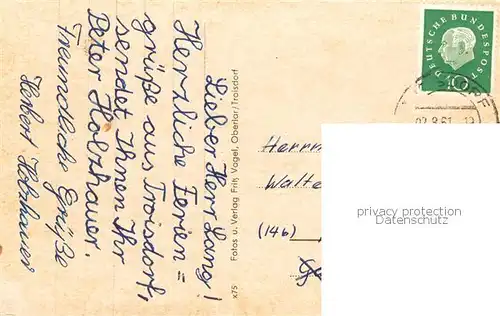 Lieber Herr Lang!
Herzliche Ferien=
grüße aus Troisdorf,
sendet Ihnen Ihr
Peter Holzhauer.
Freundliche Grüße
Herbert Holzhauer
x75 Fotos u. Verlag Fritz Vogel, Oberlar/Troisdorf
DEUTSCHE BUNDESPOST
10
Herrn
Walte
(146)
privacy protection
VDMedien24.de